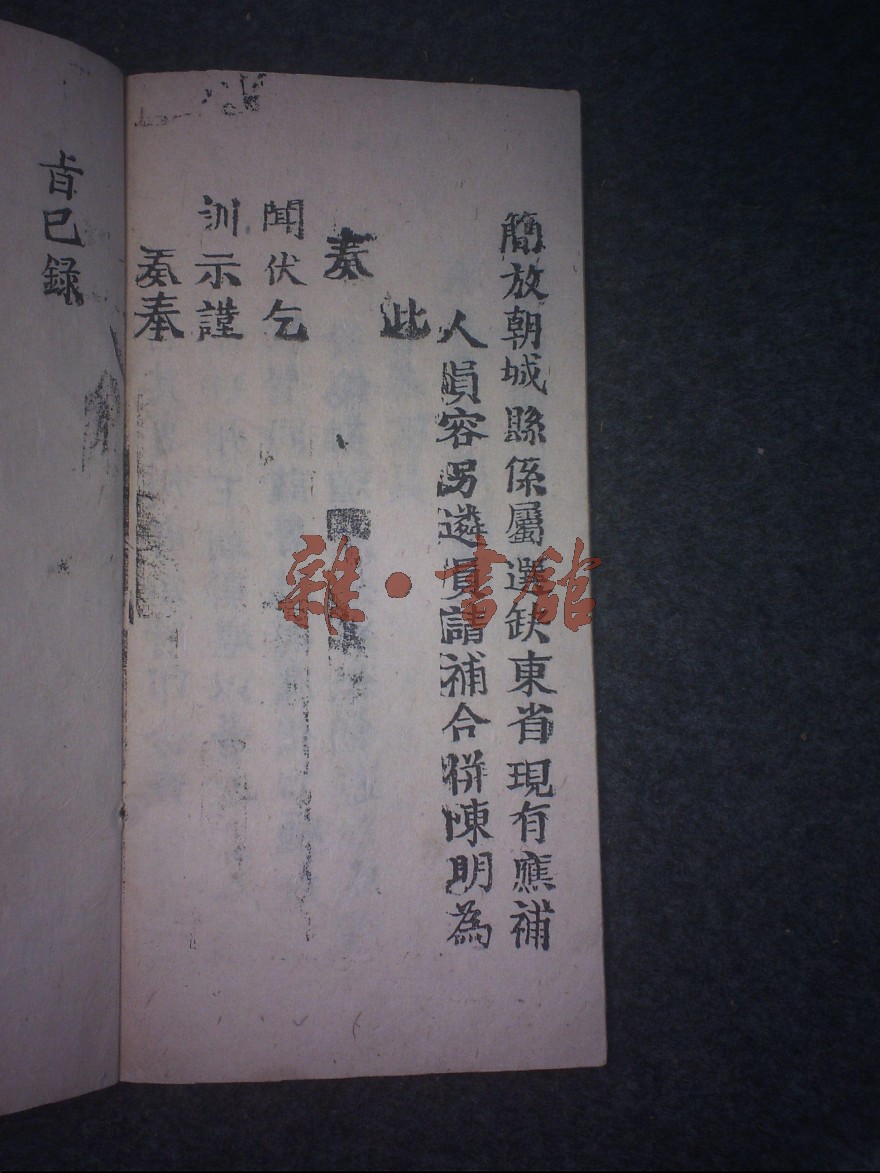 簡放朝城縣係屬選缺東省現有應補
人員容另遴員請補合併陳明為
此
奏
聞伏乞
訓示謹
奏奉
旨已録
雜·書館